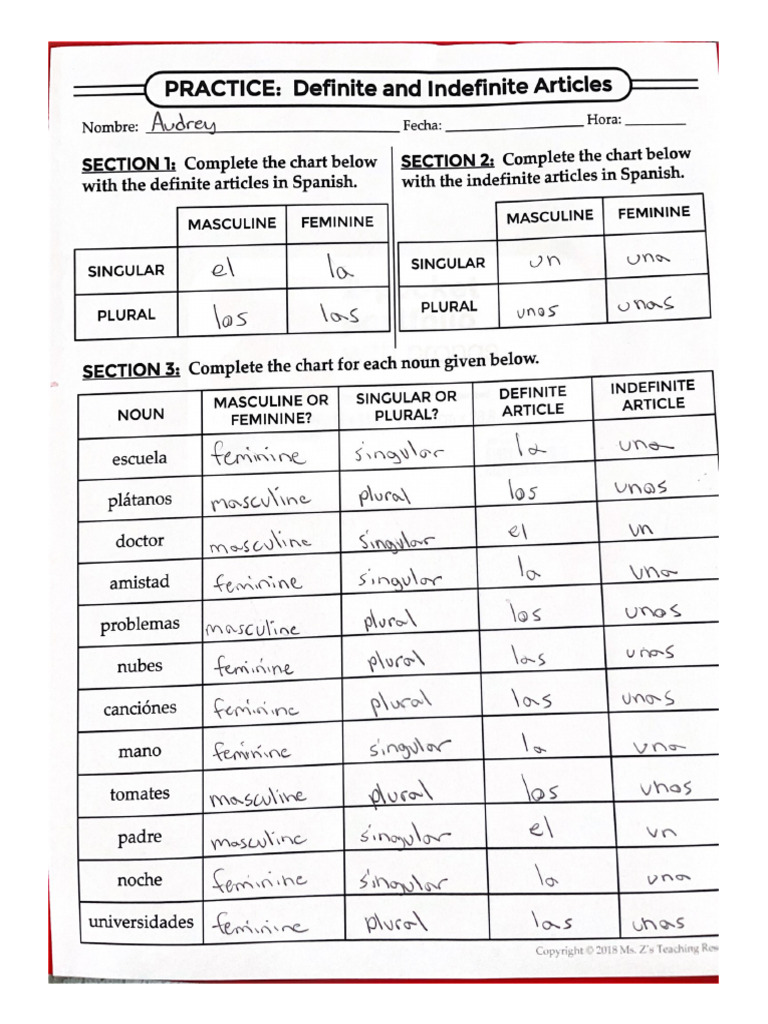 PRACTICE: Definite and Indefinite Articles
Nombre: Audrey Fecha: Hora:
SECTION 1: Complete the chart below
with the definite articles in Spanish.
MASCULINE FEMININE
SINGULAR el la
PLURAL los las
SECTION 2: Complete the chart below
with the indefinite articles in Spanish.
MASCULINE FEMININE
SINGULAR un una
PLURAL unos unas
SECTION 3: Complete the chart for each noun given below.
NOUN MASCULINE OR FEMININE? SINGULAR OR PLURAL? DEFINITE ARTICLE INDEFINITE ARTICLE
escuela feminine singular la una
plátanos masculine plural los unos
doctor masculine singular el un
amistad feminine singular la una
problemas masculine plural los unos
nubes feminine plural las unas
canciónes feminine plural las unas
mano feminine singular la una
tomates masculine plural los unos
padre masculine singular el un
noche feminine singular la una
universidades feminine plural las unas
Copyright © 2018 Ms. Z's Teaching Res